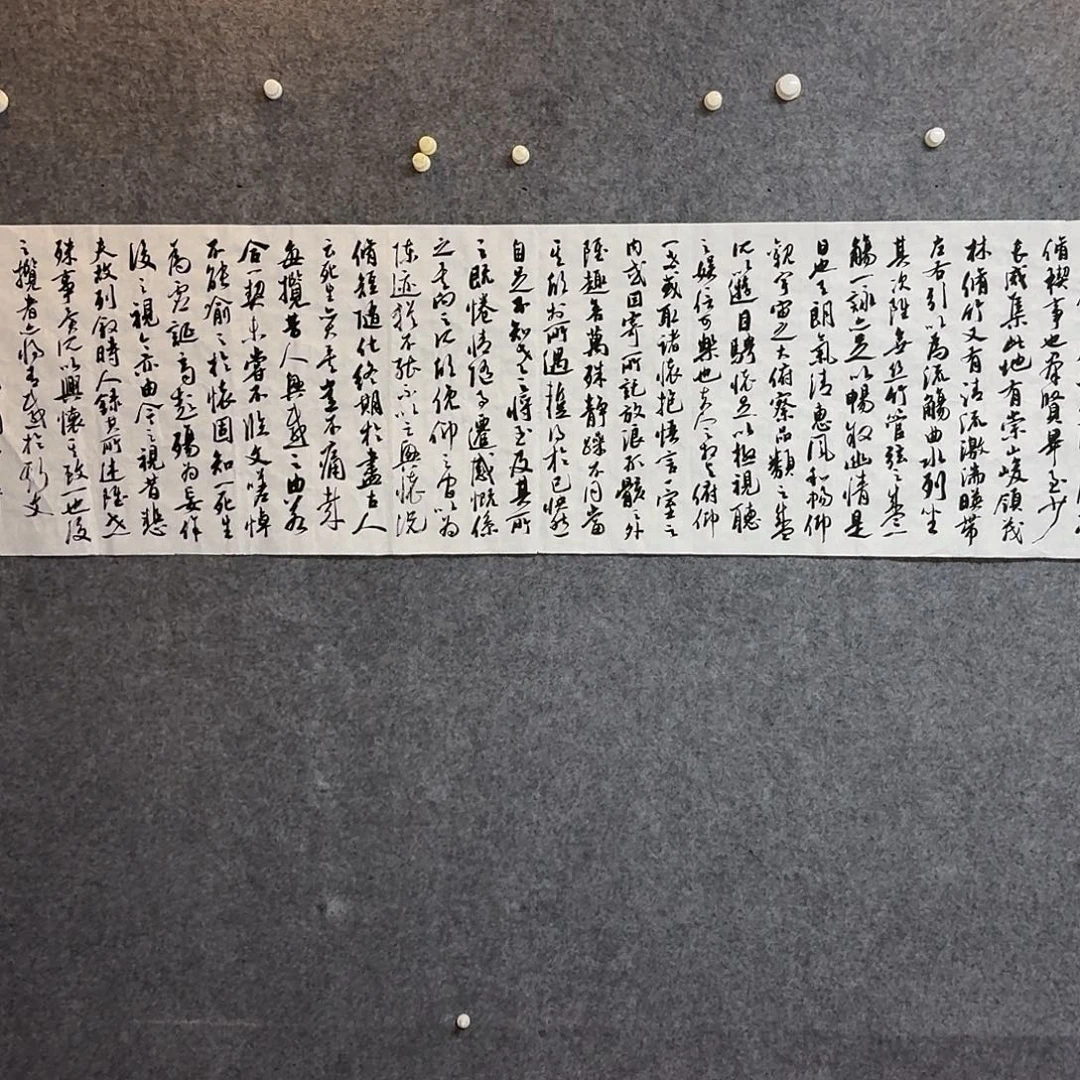 脩稧事也群賢畢至少
長咸集此地有崇山峻領茂
林脩竹又有清流激湍暎帶
左右引以為流觴曲水列坐
其次雖無絲竹管弦之盛一
觴一詠亦足以暢敘幽情是
日也天朗氣清惠風和暢仰
觀宇宙之大俯察品類之盛
所以遊目騁懷足以極視聽
之娛信可樂也夫人之相與俯仰
一世或取諸懷抱悟言一室之
內或因寄所託放浪形骸之外
雖趣舍萬殊靜躁不同當
其欣於所遇蹔得於己快然
自足不知老之將至及其所
之既惓情隨事遷感慨係
之矣向之所欣俛仰之間以為
陳迹猶不能不以之興懷況
脩短隨化終期於盡古人
云死生亦大矣豈不痛哉
每攬昔人興感之由若
合一契未嘗不臨文嗟悼
不能喻之於懷固知一死生
為虛誕齊彭殤為妄作
後之視今亦由今之視昔悲
夫故列敘時人錄其所述雖世
殊事異所以興懷其致一也後
之攬者亦將有感於斯文